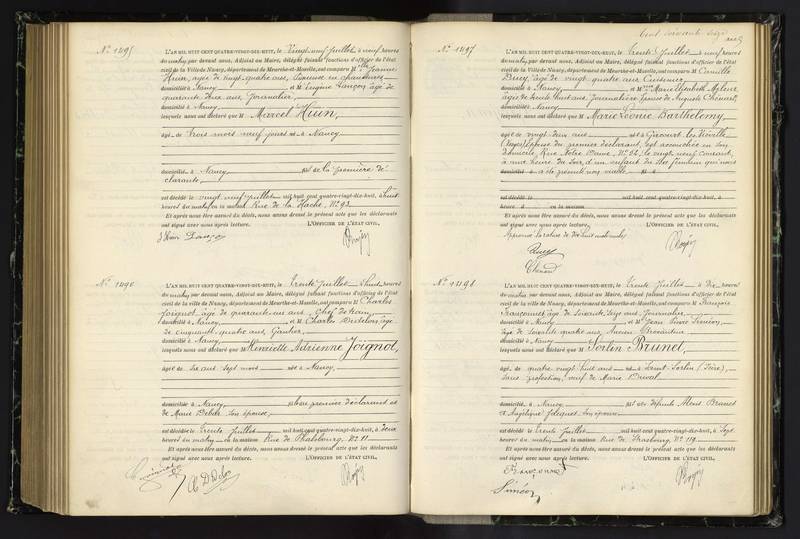 Nº 1495
L'AN MIL HUIT CENT QUATRE-VINGT-DIX-HUIT, le Vingt neuf Juillet à neuf heures
du matin, par devant nous, Adjoint au Maire, délégué faisant fonctions d'officier de l'état
civil de la Ville de Nancy, département de Meurthe-et-Moselle, ont comparu Mlle Jeanne
Huin, âgée de vingt quatre ans,
domiciliée à Nancy et M. Eugène âgé de
quarante deux ans, Journalier,
domicilié à Nancy
lesquels nous ont déclaré que M Marcel Huin,
âgé de trois mois neuf jours né à Nancy
domicilié à Nancy fils de la première dé
clarante,
est décédé le vingt neuf Juillet mil huit cent quatre-vingt-dix-huit, à huit
heures du matin, en sa maison Rue de la Hache, Nº 93
Et après nous être assuré du décès, nous avons dressé le présent acte que les déclarants
ont signé avec nous après lecture. L'OFFICIER DE L'ÉTAT CIVIL,
Nº 1496
L'AN MIL HUIT CENT QUATRE-VINGT-DIX-HUIT, le Trente Juillet à huit heures
du matin, par devant nous, Adjoint au Maire, délégué faisant fonctions d'officier de l'état
civil de la ville de Nancy, département de Meurthe-et-Moselle, ont comparu M Charles
Joignot, âgé de quarante un ans, Chef de train,
domicilié à Nancy et M Charles âgé
de cinquante quatre ans,
domicilié à Nancy
lesquels nous ont déclaré que M Henriette Adrienne Joignot,
âgée de six ans sept mois née à Nancy,
domiciliée à Nancy, fille au premier déclarant et
de Marie son épouse,
est décédée le trente Juillet mil huit cent quatre-vingt-dix-huit, à deux
heures du matin en sa maison Rue de Phalsbourg, Nº 11
Et après nous être assuré du décès, nous avons dressé le présent acte que les déclarants
ont signé avec nous après lecture. L'OFFICIER DE L'ÉTAT CIVIL,
Cent soixante
Nº 1497
L'AN MIL HUIT CENT QUATRE-VINGT-DIX-HUIT, le trente Juillet à neuf heures
du matin, par devant nous, Adjoint au Maire, délégué faisant fonctions d'officier de l'état
civil de la Ville de Nancy, département de Meurthe-et-Moselle, ont comparu M Camille
âgé de vingt quatre ans Cuisinier,
domicilié à Nancy, et Mme Marie Elisabeth
âgée de trente huit ans, Journalière, épouse de Auguste
domiciliée à Nancy
lesquels nous ont déclaré que M Marie Léonie Barthelemy,
âgée de vingt deux ans née à Gircourt les Viéville
(Vosges) épouse du premier déclarant, est accouchée en son
domicile, Rue Notre Dame, Nº 22, le vingt neuf courant,
à une heure du soir, d'un enfant du sexe féminin qu'ils nous
ont présenté non viable
est décédé le mil huit cent quatre-vingt-dix-huit, à
heures d en sa maison
Et après nous être assuré du décès, nous avons dressé le présent acte que les déclarants
ont signé avec nous après lecture. L'OFFICIER DE L'ÉTAT CIVIL,
Approuvé la rature de dix huit mots nuls
Nº 1498
L'AN MIL HUIT CENT QUATRE-VINGT-DIX-HUIT, le trente Juillet à dix heures
du matin, par devant nous, Adjoint au Maire, délégué faisant fonctions d'officier de l'état
civil de la ville de Nancy, département de Meurthe-et-Moselle, ont comparu M François
Françonnet, âgé de soixante sept ans, Journalier
domicilié à Nancy et M Jean Pierre Siméon,
âgé de soixante quatre ans,
domicilié à Nancy
lesquels nous ont déclaré que M Sorlin Brunet,
âgé de quatre vingt huit ans né à Saint Sorlin (Isère),
sans profession, veuf de Marie
domicilié à Nancy fils de défunts Brunet
et Angélique son épouse
est décédé le trente Juillet mil huit cent quatre-vingt-dix-huit, à sept
heures du matin en sa maison Rue de Strasbourg, Nº 119
Et après nous être assuré du décès, nous avons dressé le présent acte que les déclarants
ont signé avec nous après lecture. L'OFFICIER DE L'ÉTAT CIVIL,
Siméon